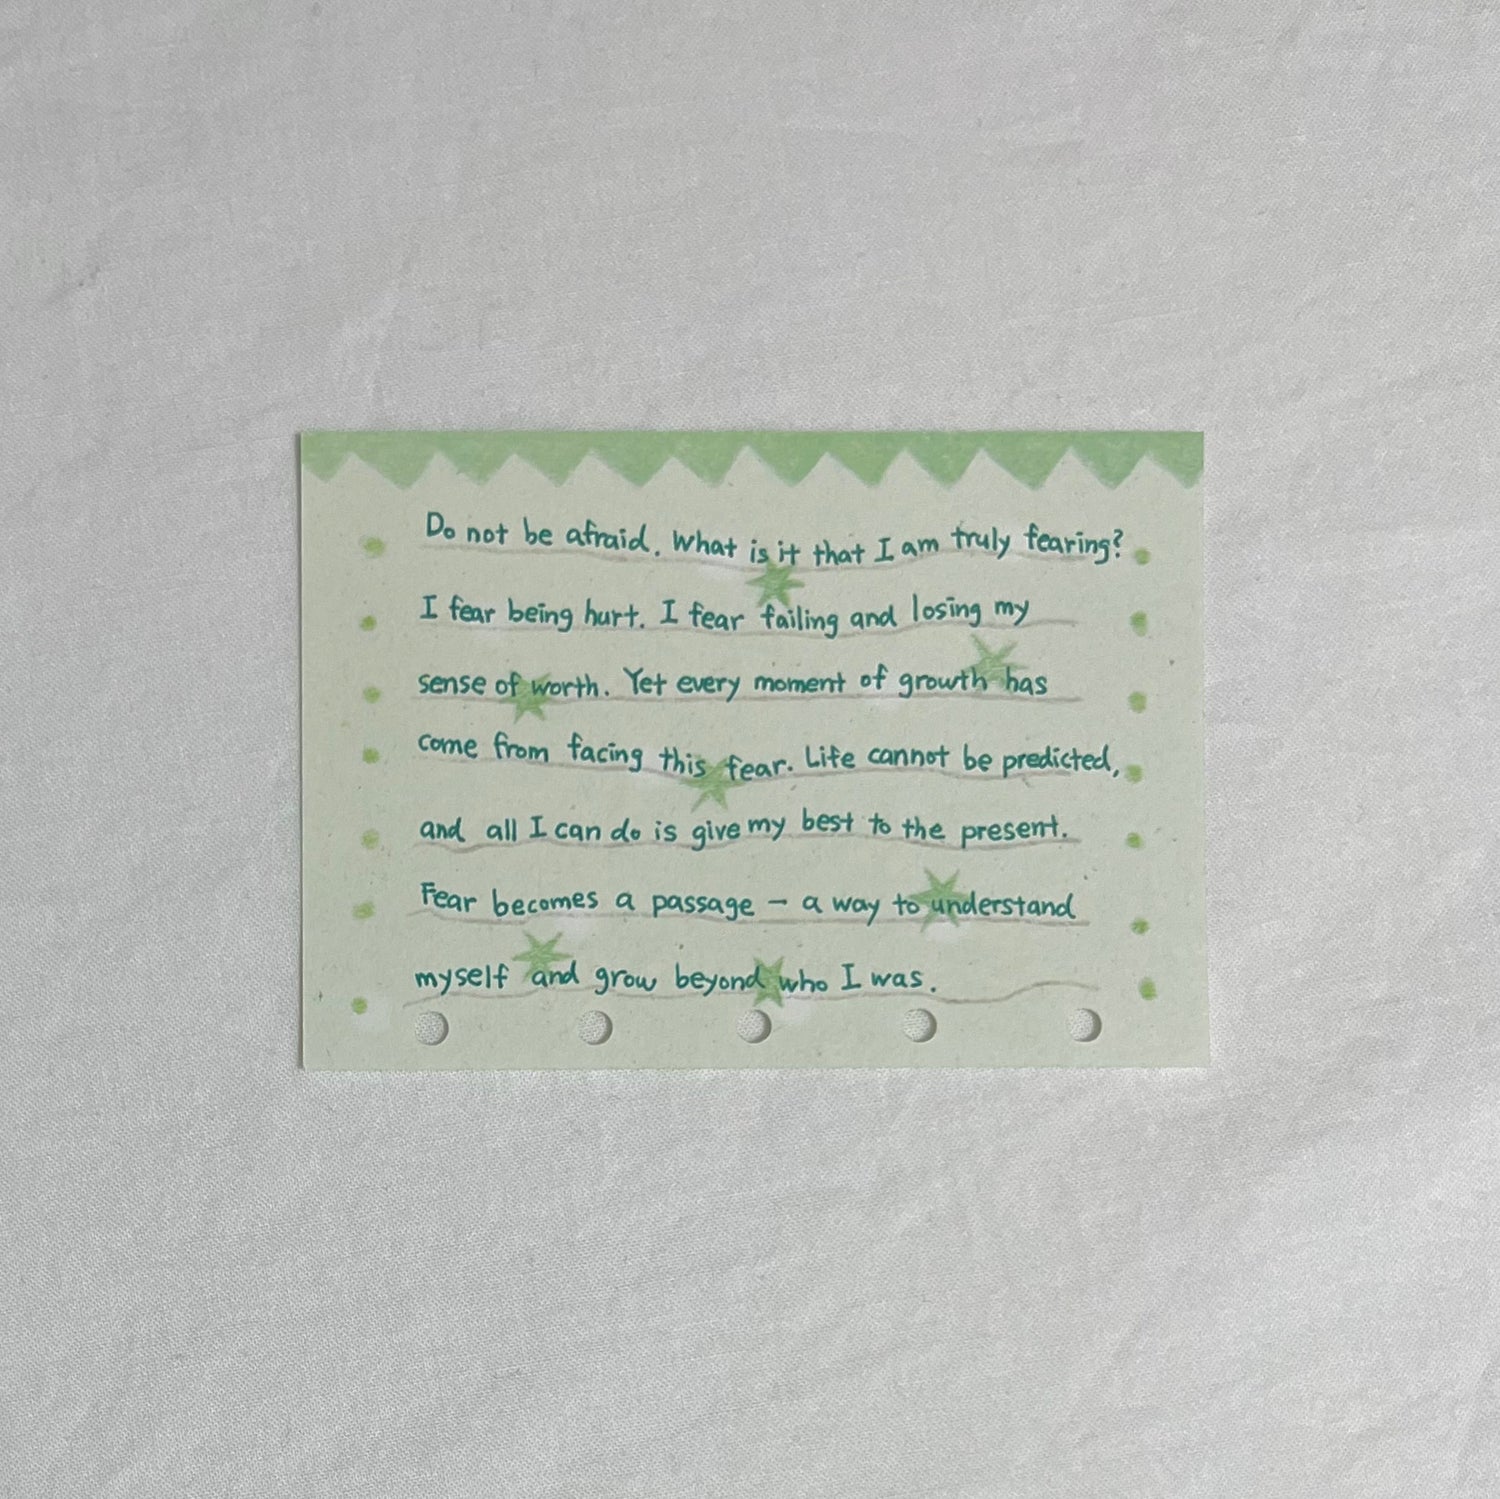 Do not be afraid. What is it that I am truly fearing?
I fear being hurt. I fear failing and losing my
sense of worth. Yet every moment of growth has
come from facing this fear. Life cannot be predicted,
and all I can do is give my best to the present.
Fear becomes a passage – a way to understand
myself and grow beyond who I was.